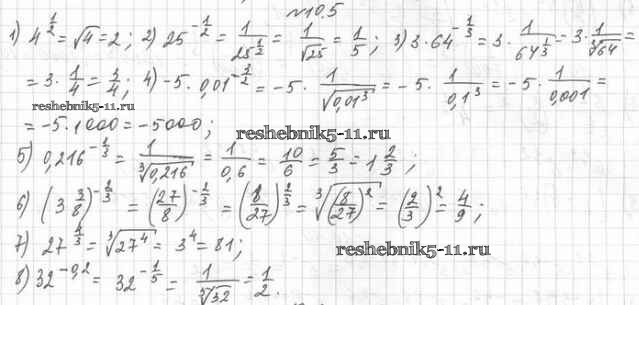 №10.5
1) 4^(1/2) = √4 = 2; 2) 25^(-1/2) = 1/25^(1/2) = 1/√25 = 1/5; 3) 3·64^(-1/3) = 3·1/64^(1/3) = 3·1/∛64 =
= 3·1/4 = 3/4; 4) -5·0,01^(-3/2) = -5·1/√(0,01³) = -5·1/0,1³ = -5·1/0,001 =
reshebnik5-11.ru
= -5·1000 = -5000;
reshebnik5-11.ru
5) 0,216^(-1/3) = 1/∛(0,216) = 1/0,6 = 10/6 = 5/3 = 1 2/3;
6) (3 3/8)^(-2/3) = (27/8)^(-2/3) = (8/27)^(2/3) = ∛((8/27)²) = (2/3)² = 4/9;
7) 27^(4/3) = ∛(27⁴) = 3⁴ = 81;
reshebnik5-11.ru
8) 32^(-0,2) = 32^(-1/5) = 1/⁵√32 = 1/2.